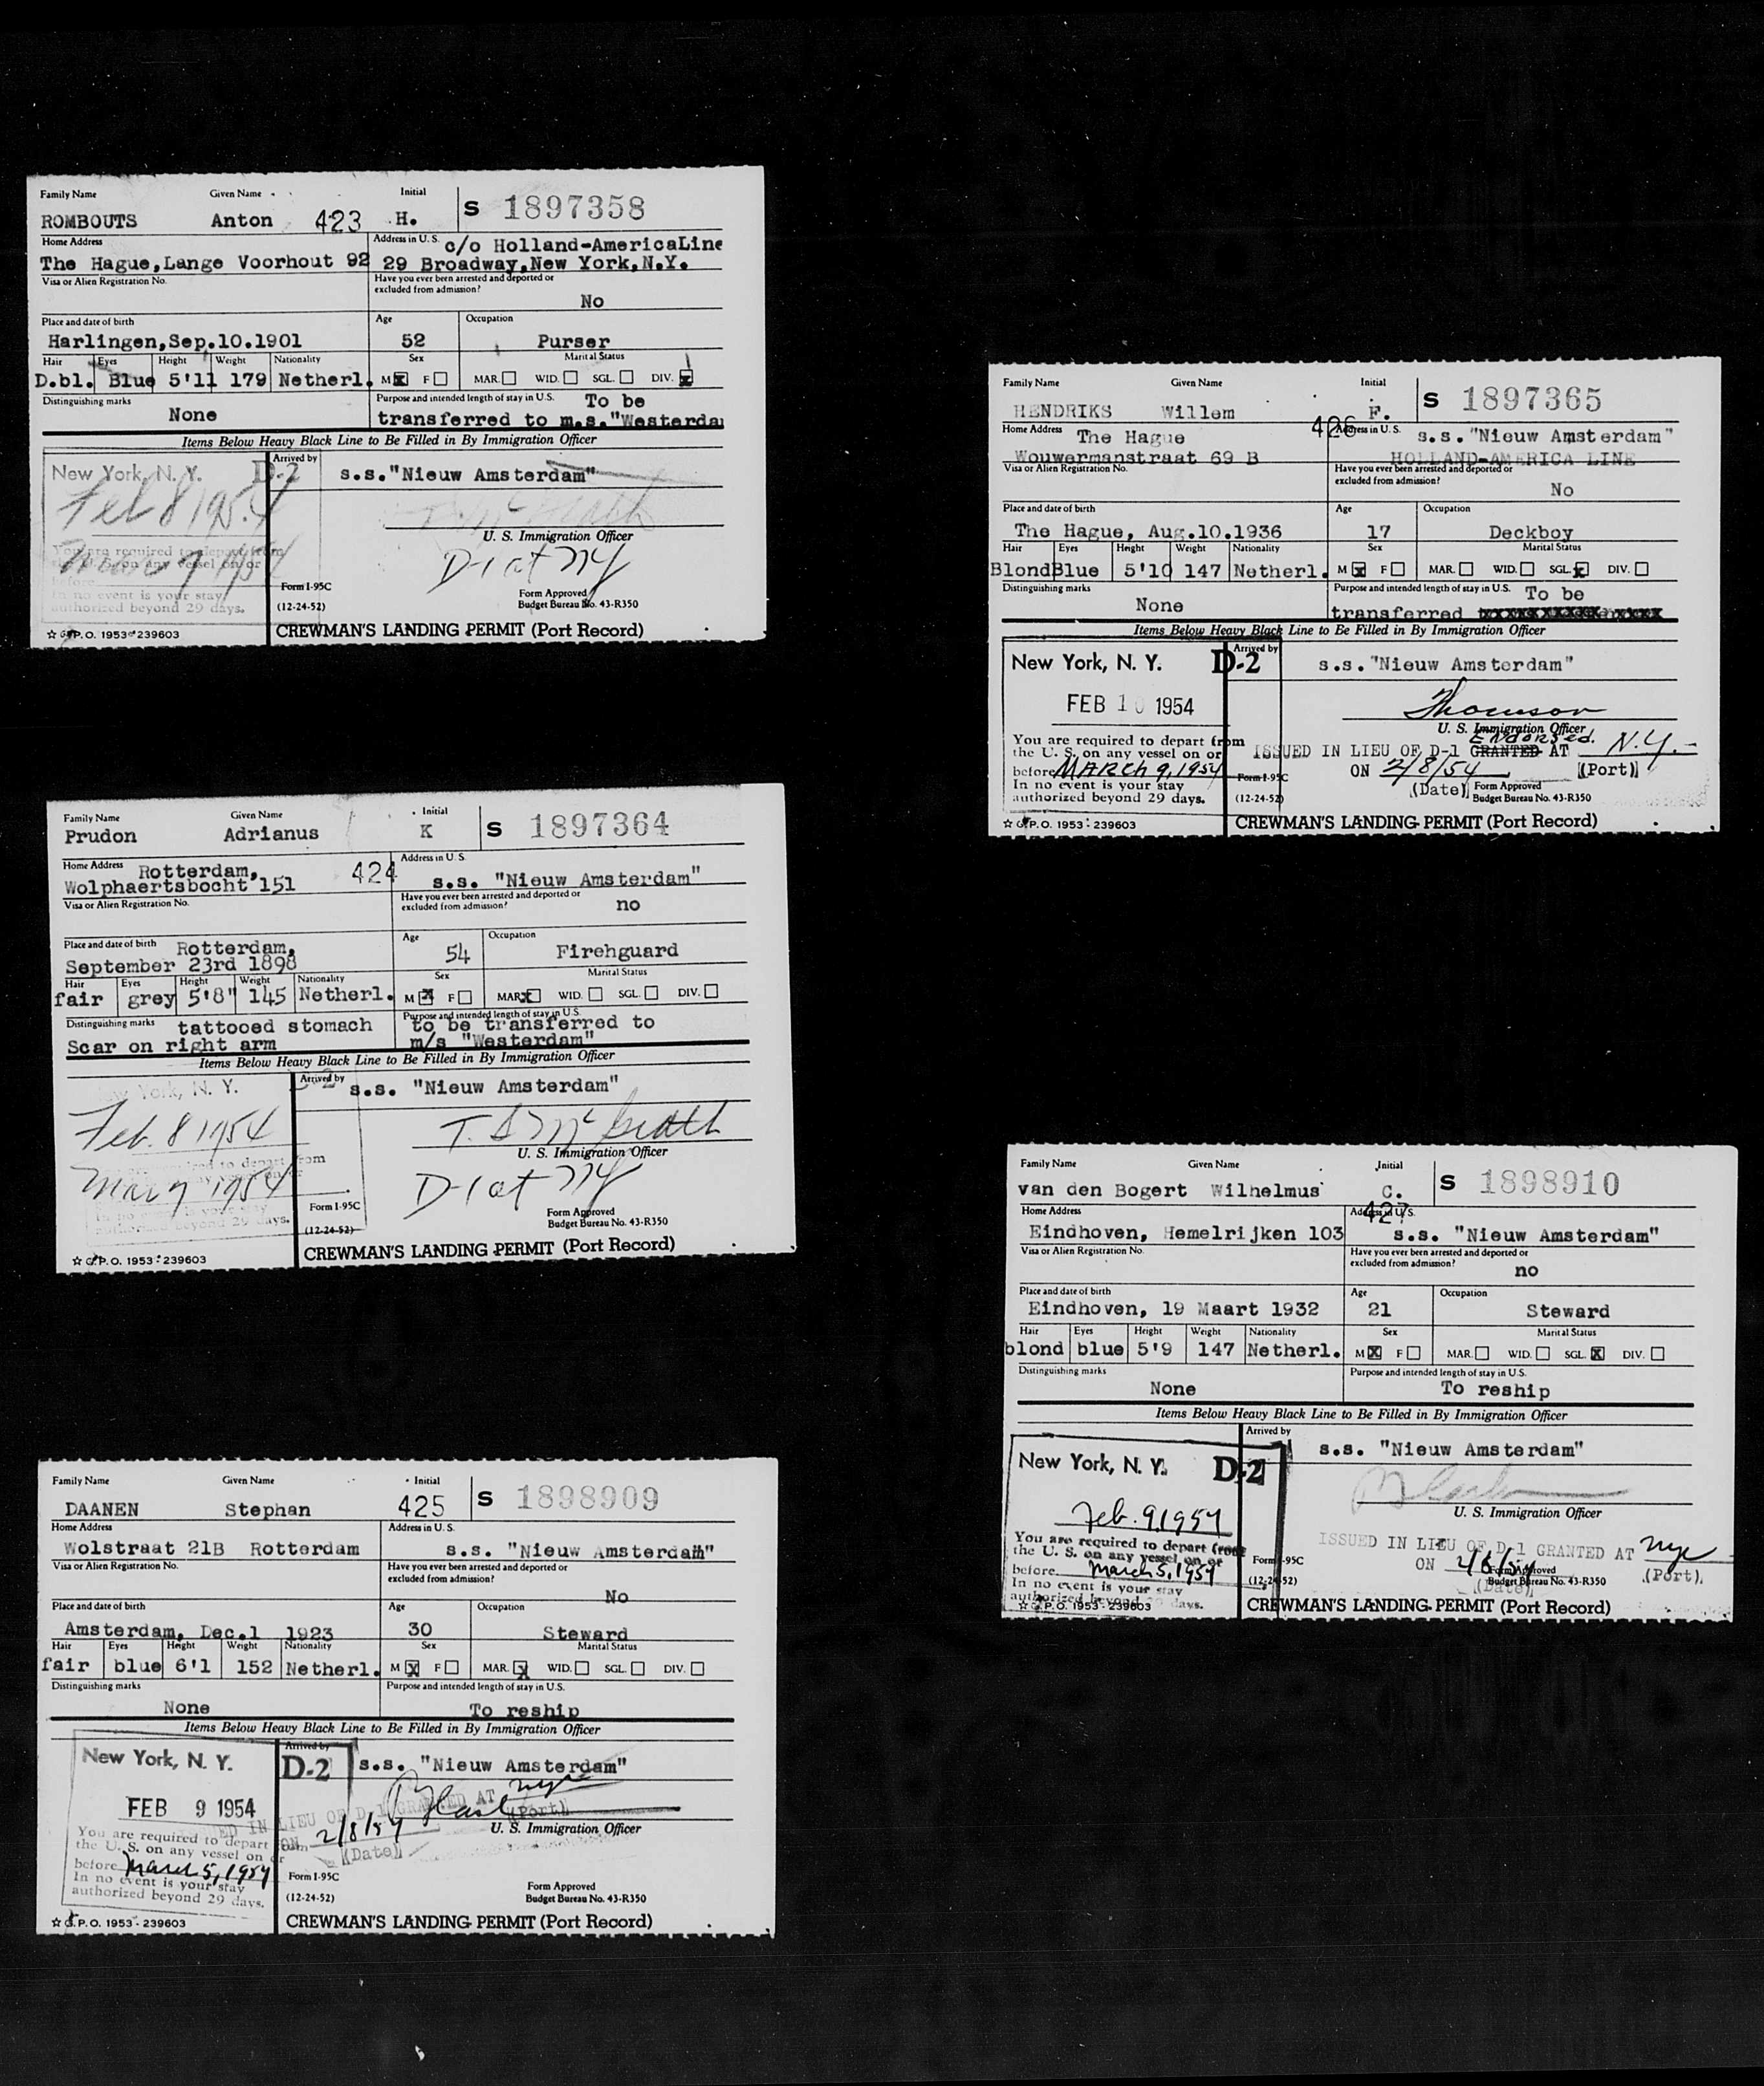 Family Name Given Name Initial
ROMBOUTS Anton 423 H. S 1897358
Home Address Address in U. S. c/o Holland-AmericaLine
The Hague,Lange Voorhout 92 29 Broadway,New York,N.Y.
Visa or Alien Registration No. Have you ever been arrested and deported or
excluded from admission?
No
Place and date of birth Age Occupation
Harlingen,Sep.10.1901 52 Purser
Hair Eyes Height Weight Nationality Sex Marital Status
D.bl. Blue 5'11 179 Netherl. M x F MAR. WID. SGL. DIV. x
Distinguishing marks Purpose and intended length of stay in U.S. To be
None transferred to m.s."Westerda
Items Below Heavy Black Line to Be Filled in By Immigration Officer
New York, N. Y. D-2 Arrived by s.s."Nieuw Amsterdam"
Feb 8 1954
U. S. Immigration Officer
You are required to depart from
the U. S. on any vessel on or
before Mar 9 1954 D-1 at NY
In no event is your stay Form I-95C Form Approved
authorized beyond 29 days. (12-24-52) Budget Bureau No. 43-R350
☆ G.P.O. 1953-239603 CREWMAN'S LANDING PERMIT (Port Record)
Family Name Given Name Initial
Prudon Adrianus K S 1897364
Home Address Rotterdam, 424 Address in U.S.
Wolphaertsbocht 151 s.s. "Nieuw Amsterdam"
Visa or Alien Registration No. Have you ever been arrested and deported or
excluded from admission? no
Place and date of birth Rotterdam, Age Occupation
September 23rd 1898 54 Firehguard
Hair Eyes Height Weight Nationality Sex Marital Status
fair grey 5'8" 145 Netherl. M x F MAR. x WID. SGL. DIV.
Distinguishing marks tattooed stomach Purpose and intended length of stay in U.S. to be transferred to
Scar on right arm m/s "Westerdam"
Items Below Heavy Black Line to Be Filled in By Immigration Officer
New York, N. Y. Arrived by s.s. "Nieuw Amsterdam"
Feb. 8 1954 T. S McGrath
U. S. Immigration Officer
Mar 9 1954 D-1 at NY
Form I-95C Form Approved
authorized beyond 29 days. (12-24-52) Budget Bureau No. 43-R350
☆ G.P.O. 1953-239603 CREWMAN'S LANDING PERMIT (Port Record)
Family Name Given Name Initial
DAANEN Stephan 425 S 1898909
Home Address Address in U.S.
Wolstraat 21B Rotterdam s.s. "Nieuw Amsterdam"
Visa or Alien Registration No. Have you ever been arrested and deported or
excluded from admission?
No
Place and date of birth Age Occupation
Amsterdam, Dec.1 1923 30 Steward
Hair Eyes Height Weight Nationality Sex Marital Status
fair blue 6'1 152 Netherl. M x F MAR. x WID. SGL. DIV.
Distinguishing marks Purpose and intended length of stay in U.S.
None To reship
Items Below Heavy Black Line to Be Filled in By Immigration Officer
New York, N. Y. D-2 Arrived by s.s. "Nieuw Amsterdam"
FEB 9 1954 IN LIEU OF D-1 GRANTED AT nyc
(Port)
You are required to depart from ON 2/8/54 U. S. Immigration Officer
the U. S. on any vessel on or (Date)
before March 5, 1954
In no event is your stay Form I-95C Form Approved
authorized beyond 29 days. (12-24-52) Budget Bureau No. 43-R350
☆ G.P.O. 1953-239603 CREWMAN'S LANDING PERMIT (Port Record)
Family Name Given Name Initial
HENDRIKS Willem F. S 1897365
Home Address The Hague 426 Address in U. S. s.s."Nieuw Amsterdam"
Wouwermanstraat 69 B HOLLAND-AMERICA LINE
Visa or Alien Registration No. Have you ever been arrested and deported or
excluded from admission? No
Place and date of birth Age Occupation
The Hague, Aug.10.1936 17 Deckboy
Hair Eyes Height Weight Nationality Sex Marital Status
Blond Blue 5'10 147 Netherl. M x F MAR. WID. SGL. x DIV.
Distinguishing marks Purpose and intended length of stay in U.S. To be
None transferred
Items Below Heavy Black Line to Be Filled in By Immigration Officer
New York, N. Y. D-2 Arrived by s.s."Nieuw Amsterdam"
FEB 10 1954 Thomson
U. S. Immigration Officer
You are required to depart from Endorsed
the U. S. on any vessel on or ISSUED IN LIEU OF D-1 GRANTED AT N.Y.
before MARCH 9, 1954 ON 2/8/54 (Port)
In no event is your stay Form I-95C (Date) Form Approved
authorized beyond 29 days. (12-24-52) Budget Bureau No. 43-R350
☆ G.P.O. 1953-239603 CREWMAN'S LANDING PERMIT (Port Record)
Family Name Given Name Initial
van den Bogert Wilhelmus C. S 1898910
Home Address 427 Address in U.S.
Eindhoven, Hemelrijken 103 s.s. "Nieuw Amsterdam"
Visa or Alien Registration No. Have you ever been arrested and deported or
excluded from admission?
no
Place and date of birth Age Occupation
Eindhoven, 19 Maart 1932 21 Steward
Hair Eyes Height Weight Nationality Sex Marital Status
blond blue 5'9 147 Netherl. M x F MAR. WID. SGL. x DIV.
Distinguishing marks Purpose and intended length of stay in U.S.
None To reship
Items Below Heavy Black Line to Be Filled in By Immigration Officer
New York, N. Y. D-2 Arrived by s.s. "Nieuw Amsterdam"
Feb. 9 1954 U. S. Immigration Officer
You are required to depart from ISSUED IN LIEU OF D-1 GRANTED AT nyc
the U. S. on any vessel on or ON 2/8/54 (Port)
before March 5, 1954 Form I-95C Form Approved
In no event is your stay (12-24-52) (Date) Budget Bureau No. 43-R350
authorized beyond 29 days.
☆ G.P.O. 1953-239603 CREWMAN'S LANDING PERMIT (Port Record)